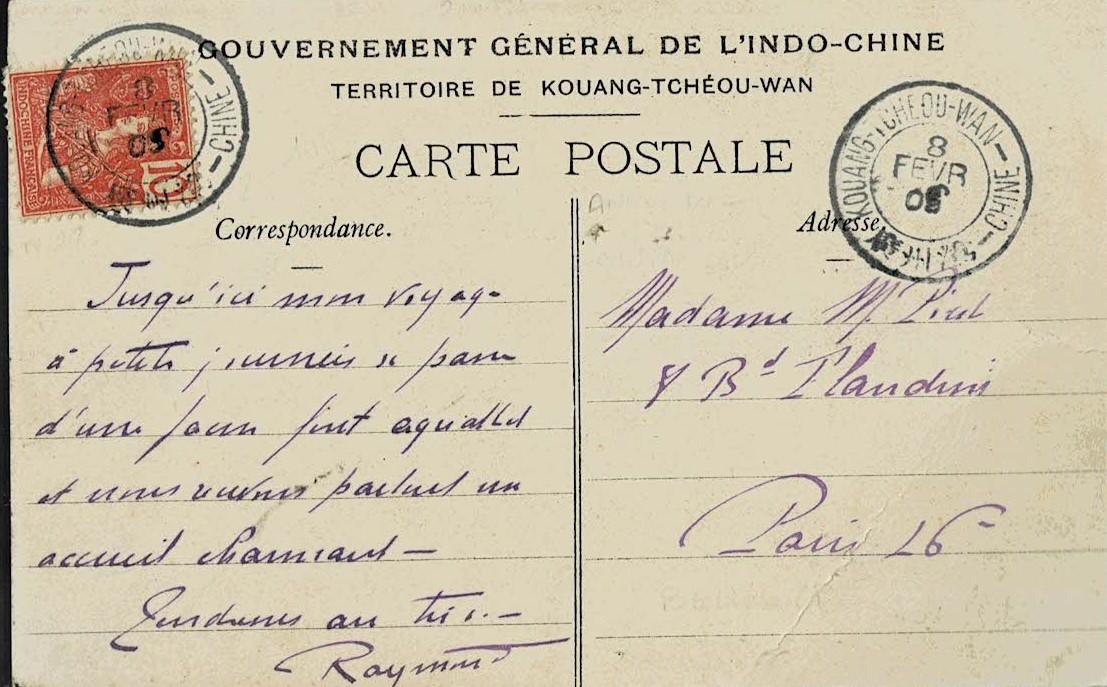 GOUVERNEMENT GÉNÉRAL DE L'INDO-CHINE
TERRITOIRE DE KOUANG-TCHÉOU-WAN
CARTE POSTALE
INDOCHINE FRANÇAISE
10
CHINE
8
FEVR
KOUANG-TCHEOU-WAN - CHINE
8
FEVR
Correspondance.
Jusqu'ici mon voyage
à petites journées se passe
d'une façon fort agréable
et nous recevons partout un
accueil charmant —
Tendresses au
Raymond
Adresse
Madame M.
8 Bd Flandrin
Paris 16e